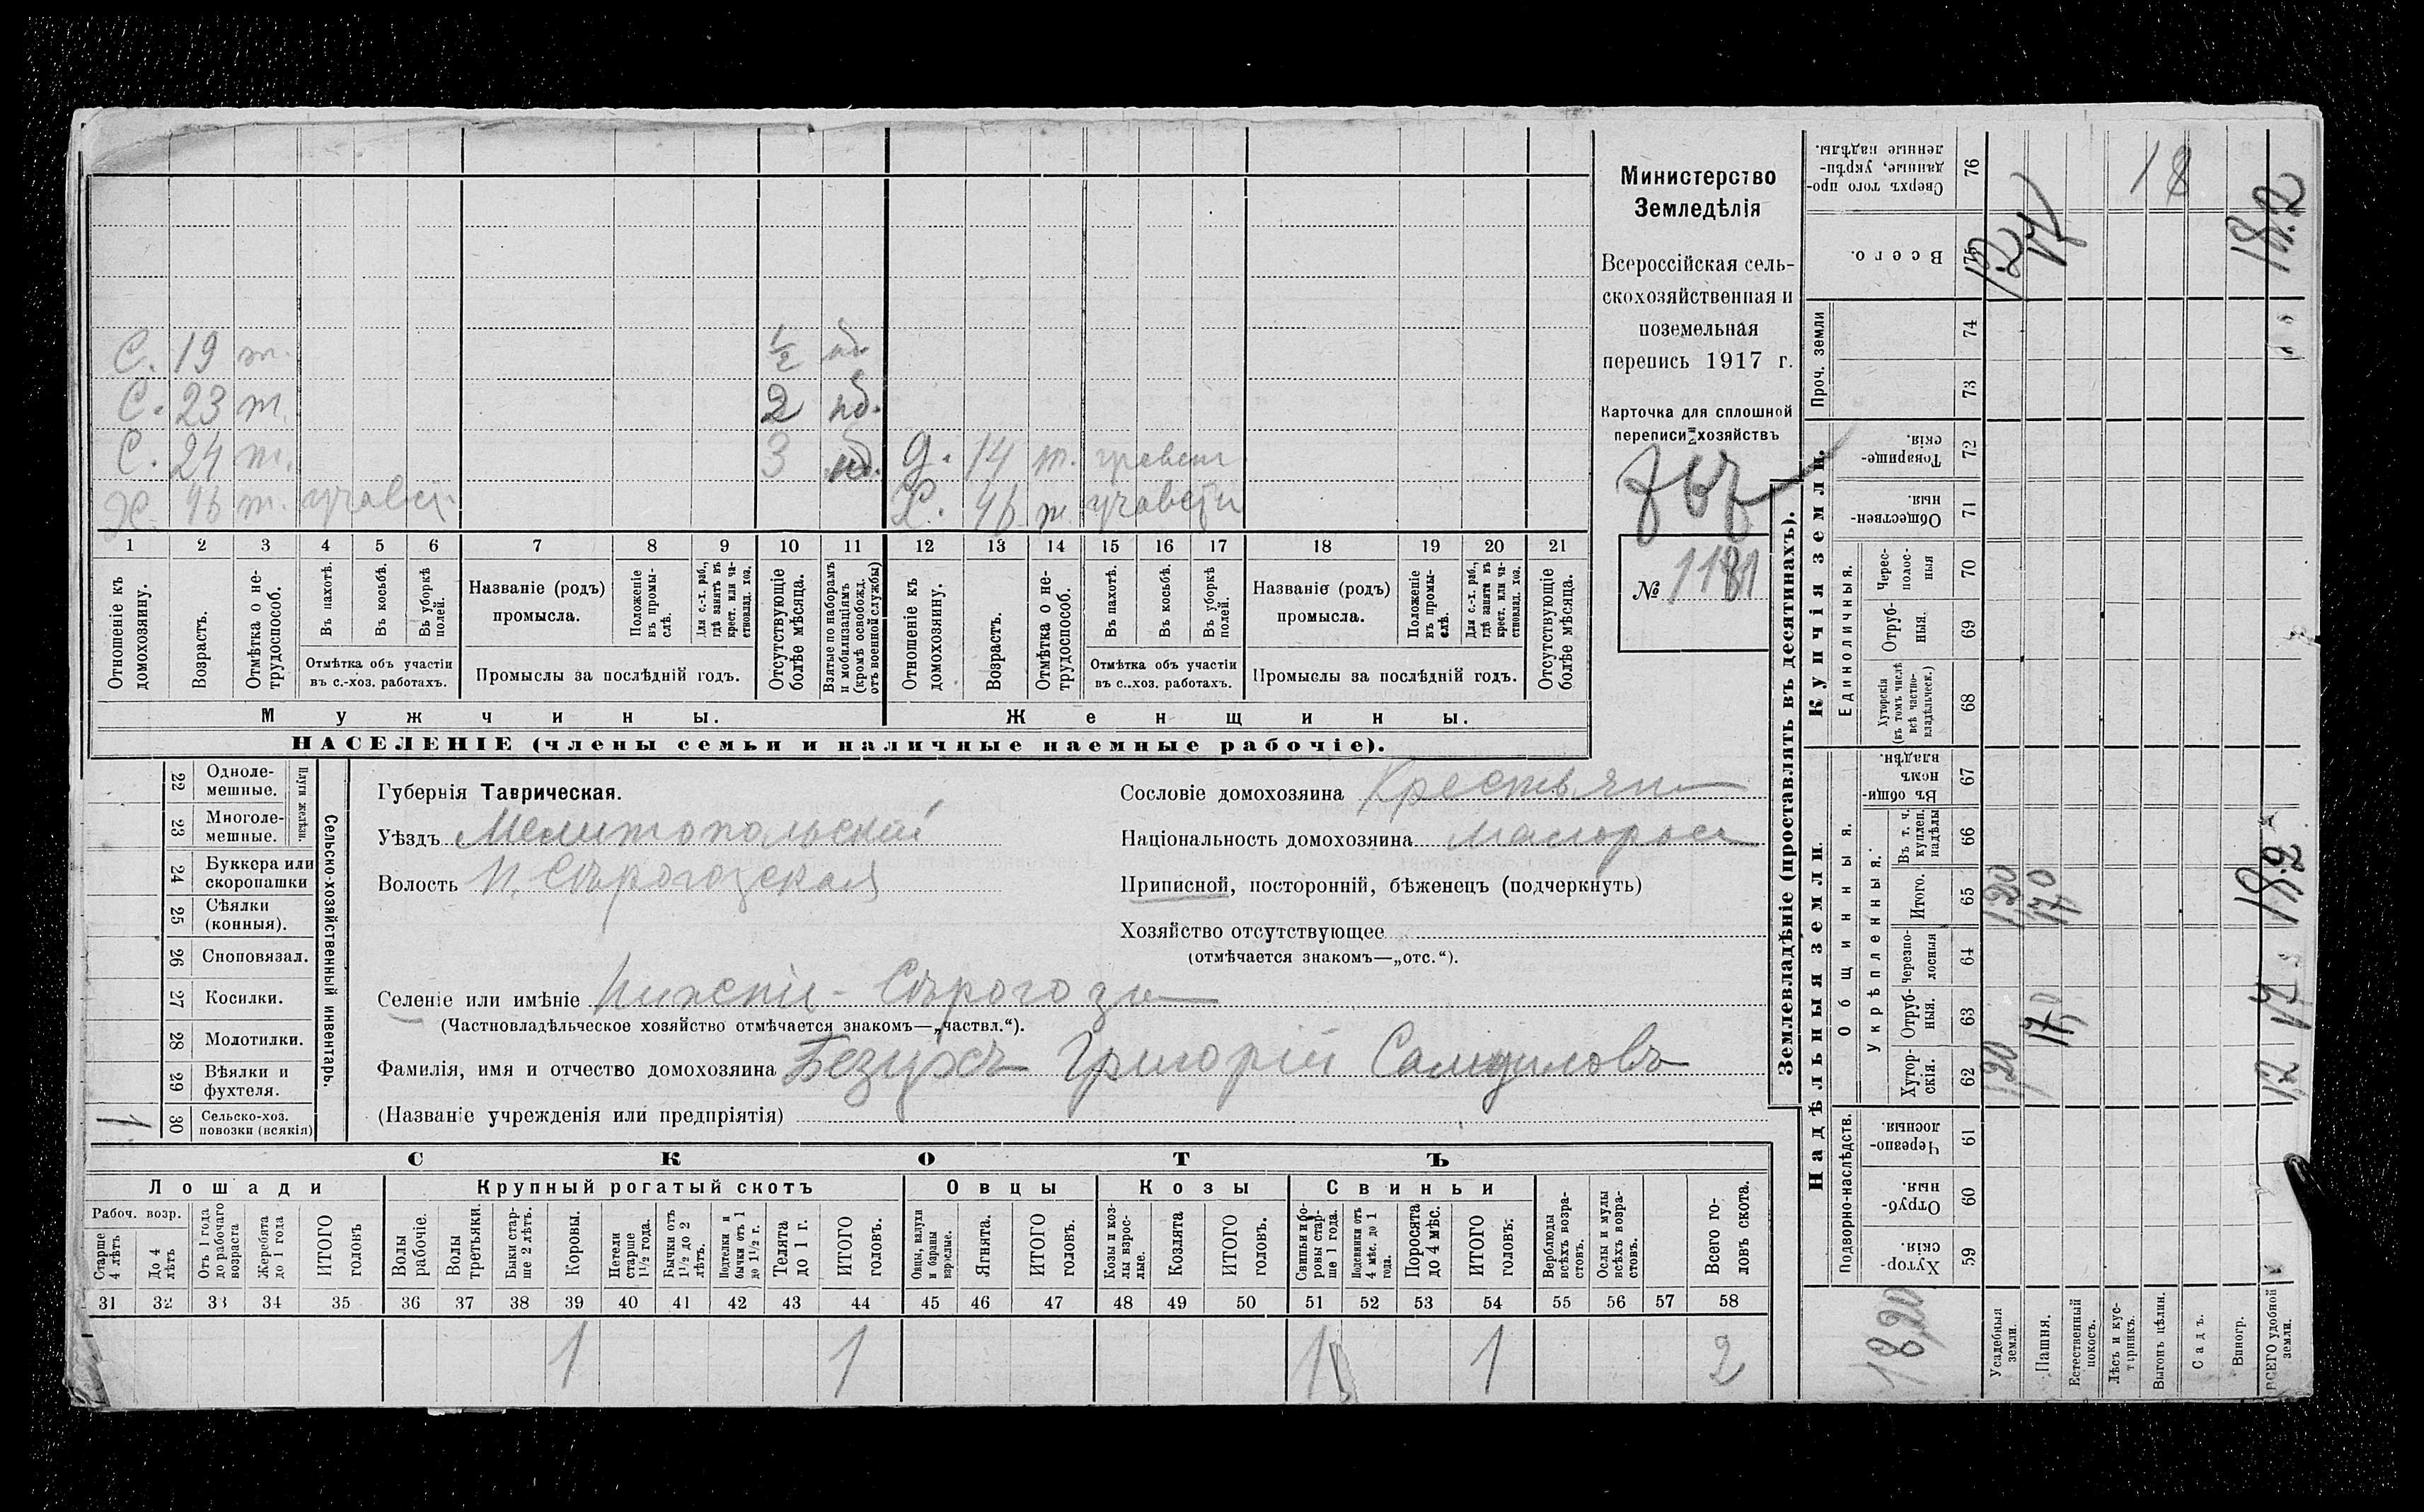 С. 19 т. 1/2 нб.
С. 23 т. 2 нб.
С. 24 т. 3 нб. Д. 14 т.
Х. 46 т. Ж. 46 т.
1 2 3 4 5 6 7 8 9 10 11 12 13 14 15 16 17 18 19 20 21
Отношеніе къ домохозяину.
Возрастъ.
Отмѣтка о не-трудоспособ.
Въ пахотѣ.
Въ косьбѣ.
Въ уборкѣ полей.
Названіе (родъ) промысла.
Положеніе въ промы-слѣ.
Для с.-х. раб., гдѣ занятъ въ крест. или ча-стновлад. хоз.
Отсутствующіе болѣе мѣсяца.
Взятые по наборамъ и мобилизаціямъ (кромѣ освобожд. отъ военной службы)
Отношеніе къ домохозяину.
Возрастъ.
Отмѣтка о не-трудоспособ.
Въ пахотѣ.
Въ косьбѣ.
Въ уборкѣ полей.
Названіе (родъ) промысла.
Положеніе въ промы-слѣ.
Для с.-х. раб., гдѣ занята въ крест. или ча-стновлад. хоз.
Отсутствующіе болѣе мѣсяца.
Отмѣтка объ участіи въ с.-хоз. работахъ.
Промыслы за послѣдній годъ.
Отмѣтка объ участіи въ с.-хоз. работахъ.
Промыслы за послѣдній годъ.
Мужчины.
Женщины.
НАСЕЛЕНІЕ (члены семьи и наличные наемные рабочіе).
Министерство
Земледѣлія
Всероссійская сель-
скохозяйственная и
поземельная
перепись 1917 г.
Карточка для сплошной
переписи хозяйствъ
№ 1181
22 Одноле-мешные.
23 Многоле-мешные.
Плуги желѣзн.
24 Буккера или скоропашки
25 Сѣялки (конныя).
26 Сноповязал.
27 Косилки.
28 Молотилки.
29 Вѣялки и фухтеля.
30 Сельско-хоз. повозки (всякія) 1
Сельско-хозяйственный инвентарь.
Губернія Таврическая.
Уѣздъ Мелитопольскій
Волость Н. Сѣрогозская
Сословіе домохозяина Крестьян
Національность домохозяина Малоросъ
Приписной, посторонній, бѣженецъ (подчеркнуть)
Хозяйство отсутствующее
(отмѣчается знакомъ—„отс.“).
Селеніе или имѣніе Нижніе-Сѣрогозы
(Частновладѣльческое хозяйство отмѣчается знакомъ—„частвл.“).
Фамилія, имя и отчество домохозяина Григорій Самуиловъ
(Названіе учрежденія или предпріятія)
СКОТЪ
Лошади
Крупный рогатый скотъ
Овцы
Козы
Свиньи
Рабоч. возр.
Старше 4 лѣтъ
До 4 лѣтъ
Отъ 1 года до рабочаго возраста
Жеребята до 1 года
ИТОГО головъ
Волы рабочіе.
Волы третьяки.
Быки стар-ше 2 лѣтъ.
Коровы.
Нетели старше 1½ года.
Бычки отъ 1½ до 2 лѣтъ.
Подтелки и бычки отъ 1 до 1½ г.
Телята до 1 г.
ИТОГО головъ.
Овцы, валухи и бараны взрослые.
Ягнята.
ИТОГО головъ.
Козы и коз-лы взрос-лые.
Козлята
ИТОГО головъ.
Свиньи и бо-ровы стар-ше 1 года.
Подсвинки отъ 4 мѣс. до 1 года.
Поросята до 4 мѣс.
ИТОГО головъ.
Верблюды всѣхъ возра-стовъ.
Ослы и мулы всѣхъ возра-стовъ.
Всего го-ловъ скота.
31 32 33 34 35 36 37 38 39 40 41 42 43 44 45 46 47 48 49 50 51 52 53 54 55 56 57 58
1 1 1 1 2
Землевладѣніе (проставлять въ десятинахъ).
Надѣльныя земли.
Купчія земли.
Подворно-наслѣдств.
Общинныя.
Укрѣпленныя.
Единоличныя.
Проч. земли
Сверхъ того про-данные, укрѣп-ленные надѣлы. 76
Всего. 75
74
73
Товарище-скія. 72
Обществен-ныя. 71
Черес-полос-ныя 70
Отруб-ныя. 69
Хуторскія (въ томъ числѣ всѣ частно-владѣльческ.) 68
Въ общи-номъ владѣн. 67
Въ т. ч. куплен. надѣлы 66
Итого. 65
Черезпо-лосныя 64
Отруб-ныя. 63
Хутор-скія. 62
Черезпо-лосныя. 61
Отруб-ныя. 60
Хутор-скія. 59
Усадебныя земли. 1,20 1,20
Пашня. 17,0 17,0
Естественный покосъ.
Лѣсъ и кус-тарникъ.
Выгонъ цѣлин. 18
Садъ.
Виногр.
ВСЕГО удобной земли.
18,20